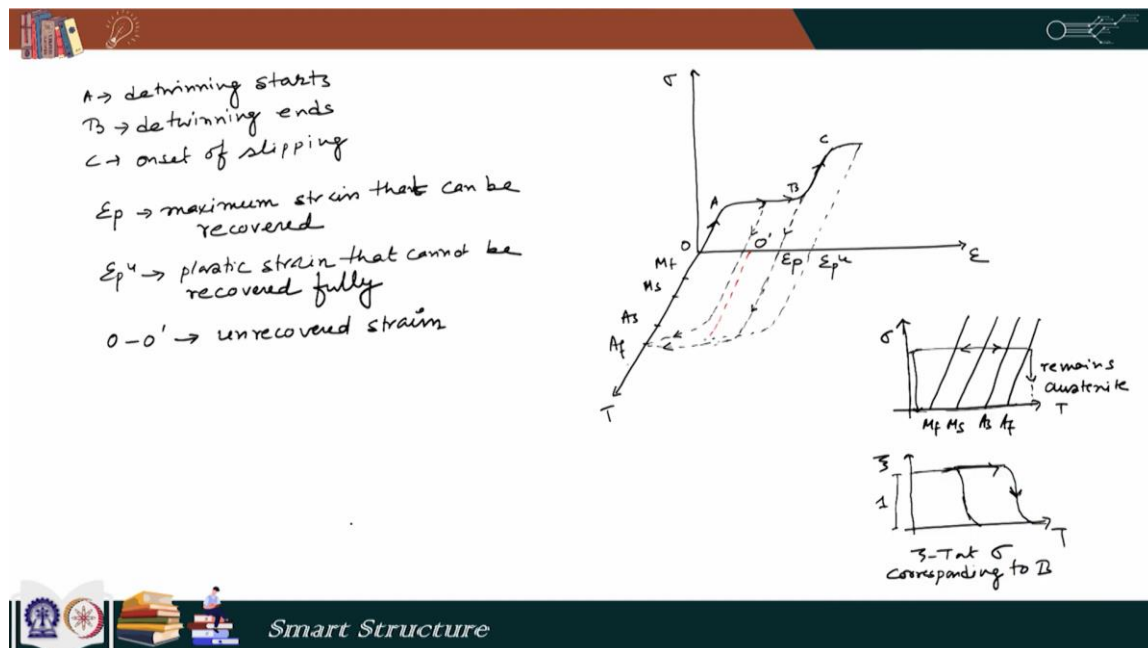 A → detwinning starts
B → detwinning ends
C → onset of slipping
εp → maximum strain that can be
recovered
εpᵘ → plastic strain that cannot be
recovered fully
O-O' → unrecovered strain
σ
C
A
B
O
O'
εp
εpᵘ
ε
Mf
Ms
As
Af
T
σ
remains
austenite
T
Mf Ms As Af
ξ
1
T
ξ-T at σ
corresponding to B
Smart Structure